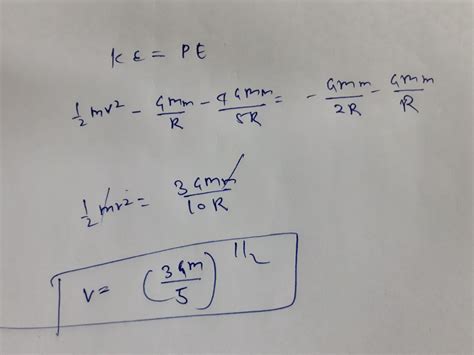 KE = PE
1/2 mv² - GMm/R - 4GMm/5R = - GMm/2R - GMm/R
1/2 mv² = 3GMm/10R
v = (3GM/5)^1/2